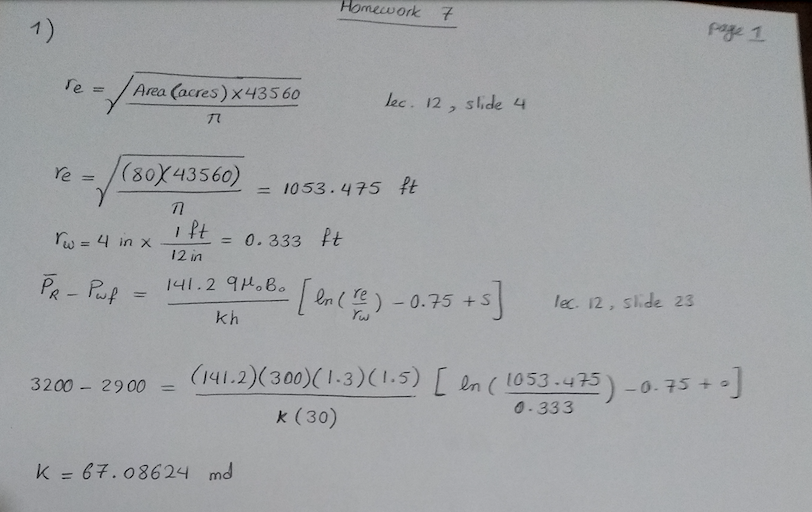 Homework 7
page 1
1)
re = √(Area (acres) x 43560 / π) lec. 12, slide 4
re = √((80)(43560) / π) = 1053.475 ft
rw = 4 in x 1 ft / 12 in = 0.333 ft
P̅R - Pwf = 141.2 q μo Bo / kh [ ln ( re / rw ) - 0.75 + S ] lec. 12, slide 23
3200 - 2900 = (141.2)(300)(1.3)(1.5) / k (30) [ ln ( 1053.475 / 0.333 ) - 0.75 + 0 ]
K = 67.08624 md